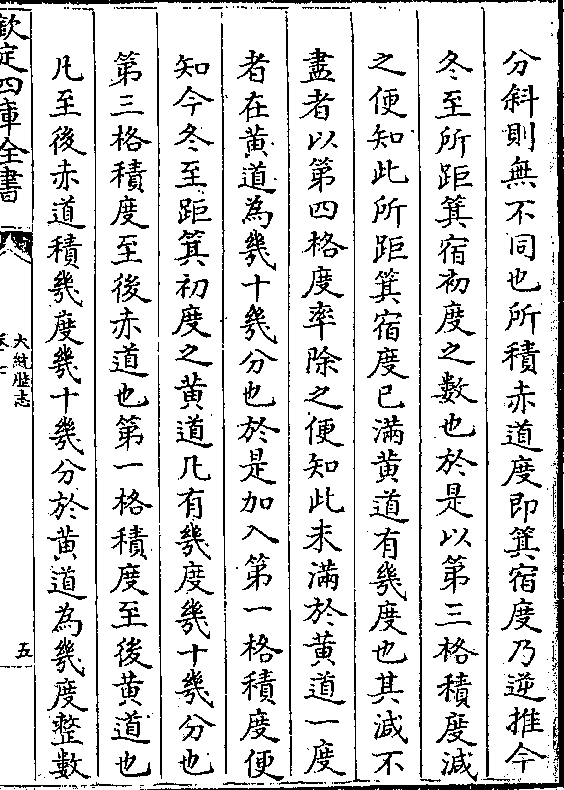 分斜則無不同也所積赤道度即箕宿度乃逆推今
冬至所距箕宿初度之數也於是以第三格積度減
之便知此所距箕宿度已滿黄道有幾度也其減不
盡者以第四格度率除之便知此未滿於黄道一度
者在黄道為幾十幾分也於是加入第一格積度便
知今冬至距箕初度之黄道凡有幾度幾十幾分也
第三格積度至後赤道也第一格積度至後黄道也
凡至後赤道積幾度幾十幾分於黄道為幾度整數
欽定四庫全書
大統歴志
五